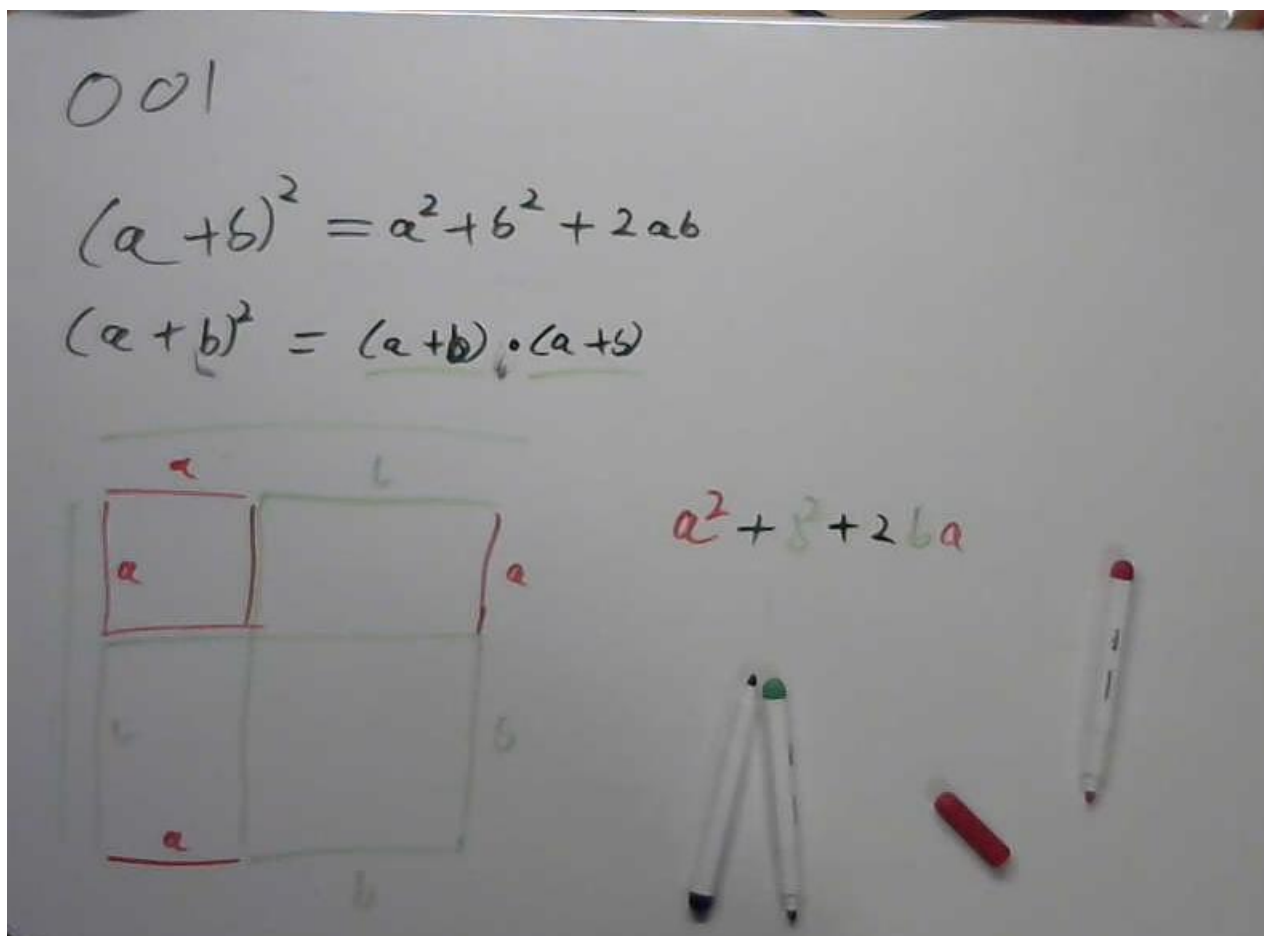 001
(a+b)² = a²+b²+2ab
(a+b)² = (a+b)·(a+b)
a b
a a
a²+b²+2ba
b b
a
b